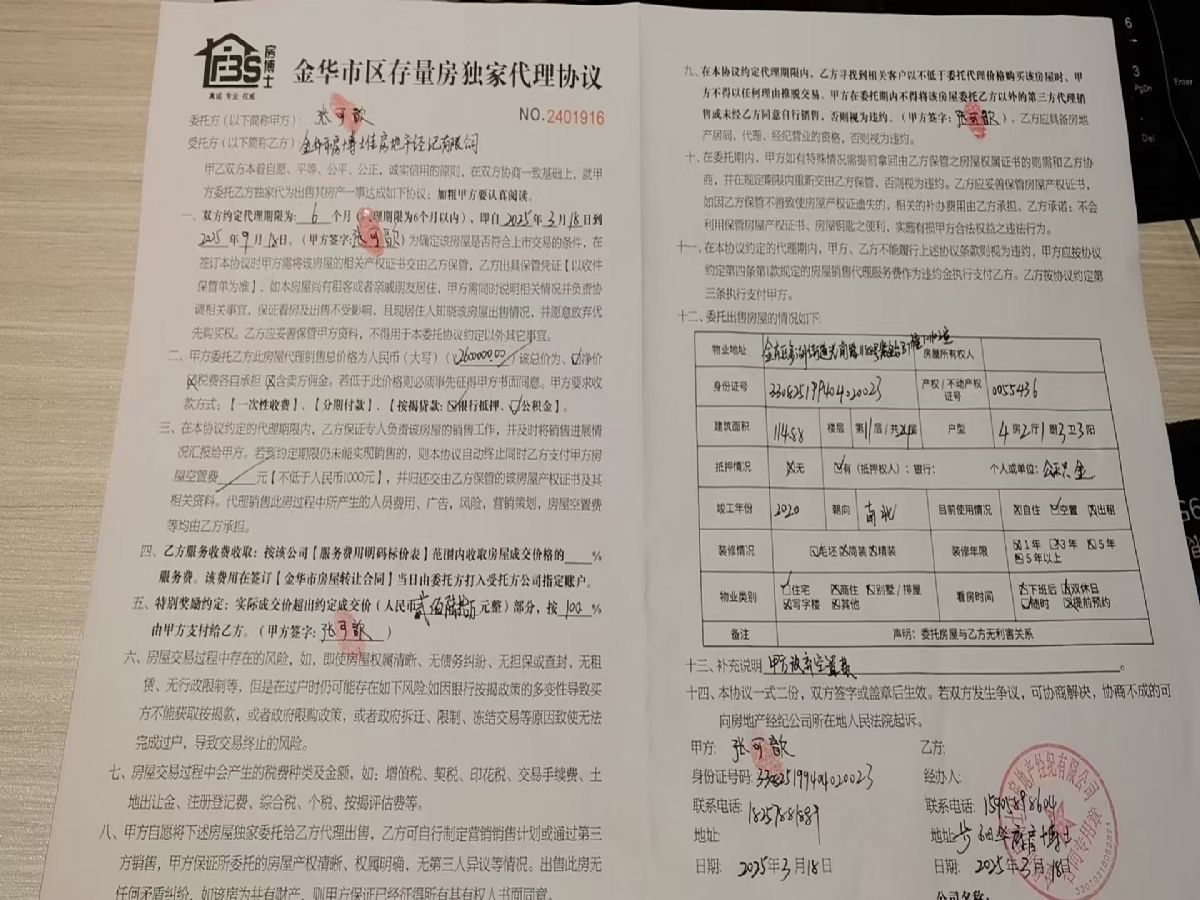 FBS
房博士
真诚 专业 权威
金华市区存量房独家代理协议
NO.2401916
委托方（以下简称甲方）：张可歆
受托方（以下简称乙方）金华市房博士佳房地产经纪有限公司
甲乙双方本着自愿、平等、公平、公正，诚实信用的原则，在双方协商一致基础上，就甲
方委托乙方独家代为出售其房产一事达成如下协议：加粗甲方要认真阅读。
一、双方约定代理期限为：6个月（理期限为6个月以内），即自2025年3月18日到
2025年9月18日。（甲方签字：张可歆）为确定该房屋是否符合上市交易的条件，在
签订本协议时甲方需将该房屋的相关产权证书交由乙方保管，乙方出具保管凭证【以收件
保管单为准】，如本房屋尚有租客或者亲戚朋友居住，甲方需同时说明相关情况并负责协
调相关事宜，保证看房及出售不受影响，且现居住人知晓该房屋出售情况，并愿意放弃优
先购买权。乙方应妥善保管甲方资料，不得用于本委托协议约定以外其它事宜。
二、甲方委托乙方此房屋代理销售总价格为人民币（大写）（2600000.00）该总价为、净价
税费各自承担 含卖方佣金。若低于此价格则必须事先征得甲方书面同意。甲方要求收
款方式：【一次性收费】、【分期付款】、【按揭贷款：银行抵押、公积金】。
三、在本协议约定的代理期限内，乙方保证专人负责该房屋的销售工作，并及时将销售进展情
况汇报给甲方。若到约定期限仍未能实现销售的，则本协议自动终止同时乙方支付甲方房
屋空置费 元【不低于人民币1000元】，并归还交由乙方保管的该房屋产权证书及其
相关资料。代理销售此房过程中所产生的人员费用、广告，风险，营销策划，房屋空置费
等均由乙方承担。
四、乙方服务收费收取：按该公司【服务费用明码标价表】范围内收取房屋成交价格的 %
服务费。该费用在签订【金华市房屋转让合同】当日由委托方打入受托方公司指定账户。
五、特别奖励约定：实际成交价超出约定成交价（人民币贰佰陆拾万元整）部分，按100%
由甲方支付给乙方。（甲方签字：张可歆）
六、房屋交易过程中存在的风险，如，即使房屋权属清晰、无债务纠纷、无担保或查封，无租
赁、无行政限制等，但是在过户时仍可能存在如下风险：如因银行按揭政策的多变性导致买
方不能获取按揭款，或者政府限购政策，或者政府拆迁、限制、冻结交易等原因致使无法
完成过户，导致交易终止的风险。
七、房屋交易过程中会产生的税费种类及金额，如：增值税、契税、印花税、交易手续费、土
地出让金、注册登记费、综合税、个税、按揭评估费等。
八、甲方自愿将下述房屋独家委托给乙方代理出售，乙方可自行制定营销销售计划或通过第三
方销售，甲方保证所委托的房屋产权清晰、权属明确，无第三人异议等情况。出售此房无
任何矛盾纠纷，如该房为共有财产，则甲方保证已经征得所有其有权人书面同意。
九、在本协议约定代理期限内，乙方寻找到相关客户以不低于委托代理价格购买该房屋时，甲
方不得以任何理由推脱交易。甲方在委托期内不得将该房屋委托乙方以外的第三方代理销
售或未经乙方同意自行销售，否则视为违约。（甲方签字：张可歆），乙方应具备房地
产居间、代理、经纪营业的资格，否则视为违约。
十、在委托期内，甲方如有特殊情况需提前拿回由乙方保管之房屋权属证书的则需和乙方协
商，并在规定期限内重新交由乙方保管，否则视为违约。乙方应妥善保管房屋产权证书，
如因乙方保管不善致使房屋产权证遗失的，相关的补办费用由乙方承担、乙方承诺：不会
利用保管房屋产权证书、房屋钥匙之便利，实施有损甲方合法权益之违法行为。
十一、在本协议约定的代理期内，甲方、乙方不能履行上述协议条款则视为违约，甲方应按协议
约定第四条第1款规定的房屋销售代理服务费作为违约金执行支付乙方。乙方按协议约定第
三条执行支付甲方。
十二、委托出售房屋的情况如下：
物业地址 房屋所有权人
身份证号 330825199404020023 产权/不动产权证号 0055436
建筑面积 114.88 楼层 第11层/共 层 户型 4房2厅1厨3卫3阳
抵押情况 无 有（抵押权人）：银行： 个人或单位：公积金
竣工年份 2020 朝向 南北 目前使用情况 自住 空置 出租
装修情况 毛坯 简装 精装 装修年限 1年 3年 5年 5年以上
物业类别 住宅 商住 别墅/排屋 写字楼 其他 看房时间 下班后 双休日 随时 提前预约
备注 声明：委托房屋与乙方无利害关系
十三、补充说明 甲方放弃空置费。
十四、本协议一式二份，双方签字或盖章后生效。若双方发生争议，可协商解决，协商不成的可
向房地产经纪公司所在地人民法院起诉。
甲方：张可歆 乙方：
身份证号码：330825199404020023 经办人：
联系电话：18257881889 联系电话：15905898604
地址： 地址：
日期：2025年3月18日 日期：2025年3月18日
公司名称：